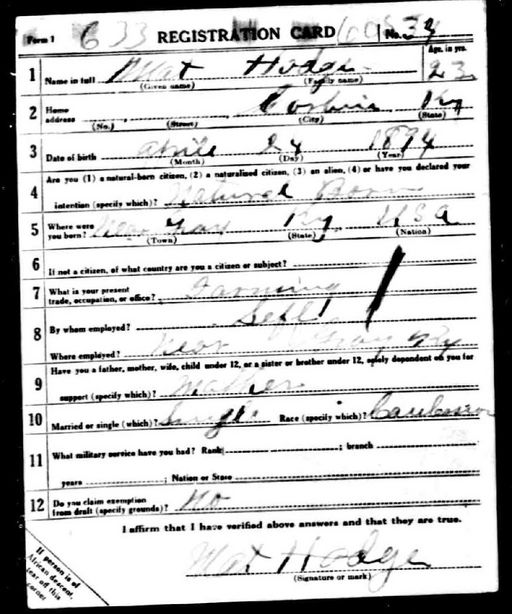 Form 1 633 REGISTRATION CARD No. 34
Age, in yrs.
1 Name in full Mat Hodge 23
(Given name) (Family name)
2 Home address Corbin Ky
(No.) (Street) (City) (State)
3 Date of birth Aprile 24 1894
(Month) (Day) (Year)
Are you (1) a natural-born citizen, (2) a naturalized citizen, (3) an alien, (4) or have you declared your
4 intention (specify which)? Natural Born
5 Where were you born? Near Gray Ky USA
(Town) (State) (Nation)
6 If not a citizen, of what country are you a citizen or subject?
7 What is your present trade, occupation, or office? Farming
8 By whom employed? Self
Where employed? Near Gray Ky
Have you a father, mother, wife, child under 12, or a sister or brother under 12, solely dependent on you for
9 support (specify which)? Mother
10 Married or single (which)? Single Race (specify which)?
11 What military service have you had? Rank ; branch
years ; Nation or State
12 Do you claim exemption from draft (specify grounds)? No
I affirm that I have verified above answers and that they are true.
Mat Hodge
(Signature or mark)
If person is of
African descent,
tear off this
corner